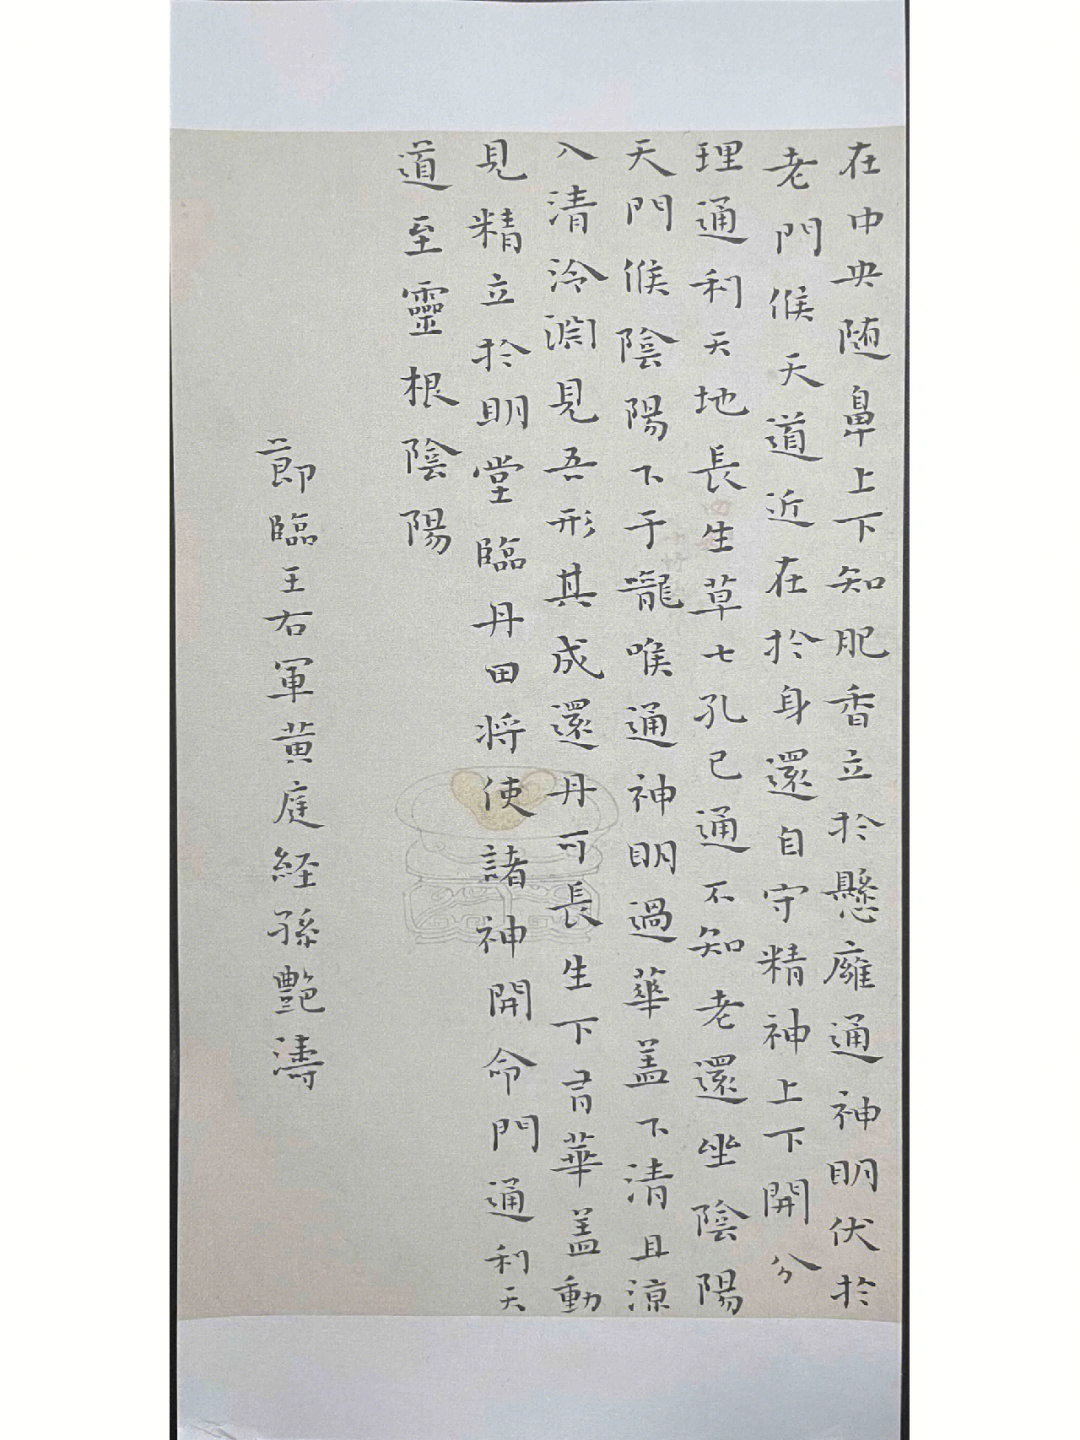 在中央随鼻上下知肥香立於懸廱通神明伏於
老門候天道近在於身還自守精神上下開分
理通利天地長生草七孔已通不知老還坐陰陽
天門候陰陽下于嚨喉通神明過華盖下清且涼
入清泠淵見吾形其成還丹可長生下有華盖動
見精立於明堂臨丹田将使諸神開命門通利天
道至靈根陰陽
節臨王右軍黄庭経孫艶濤